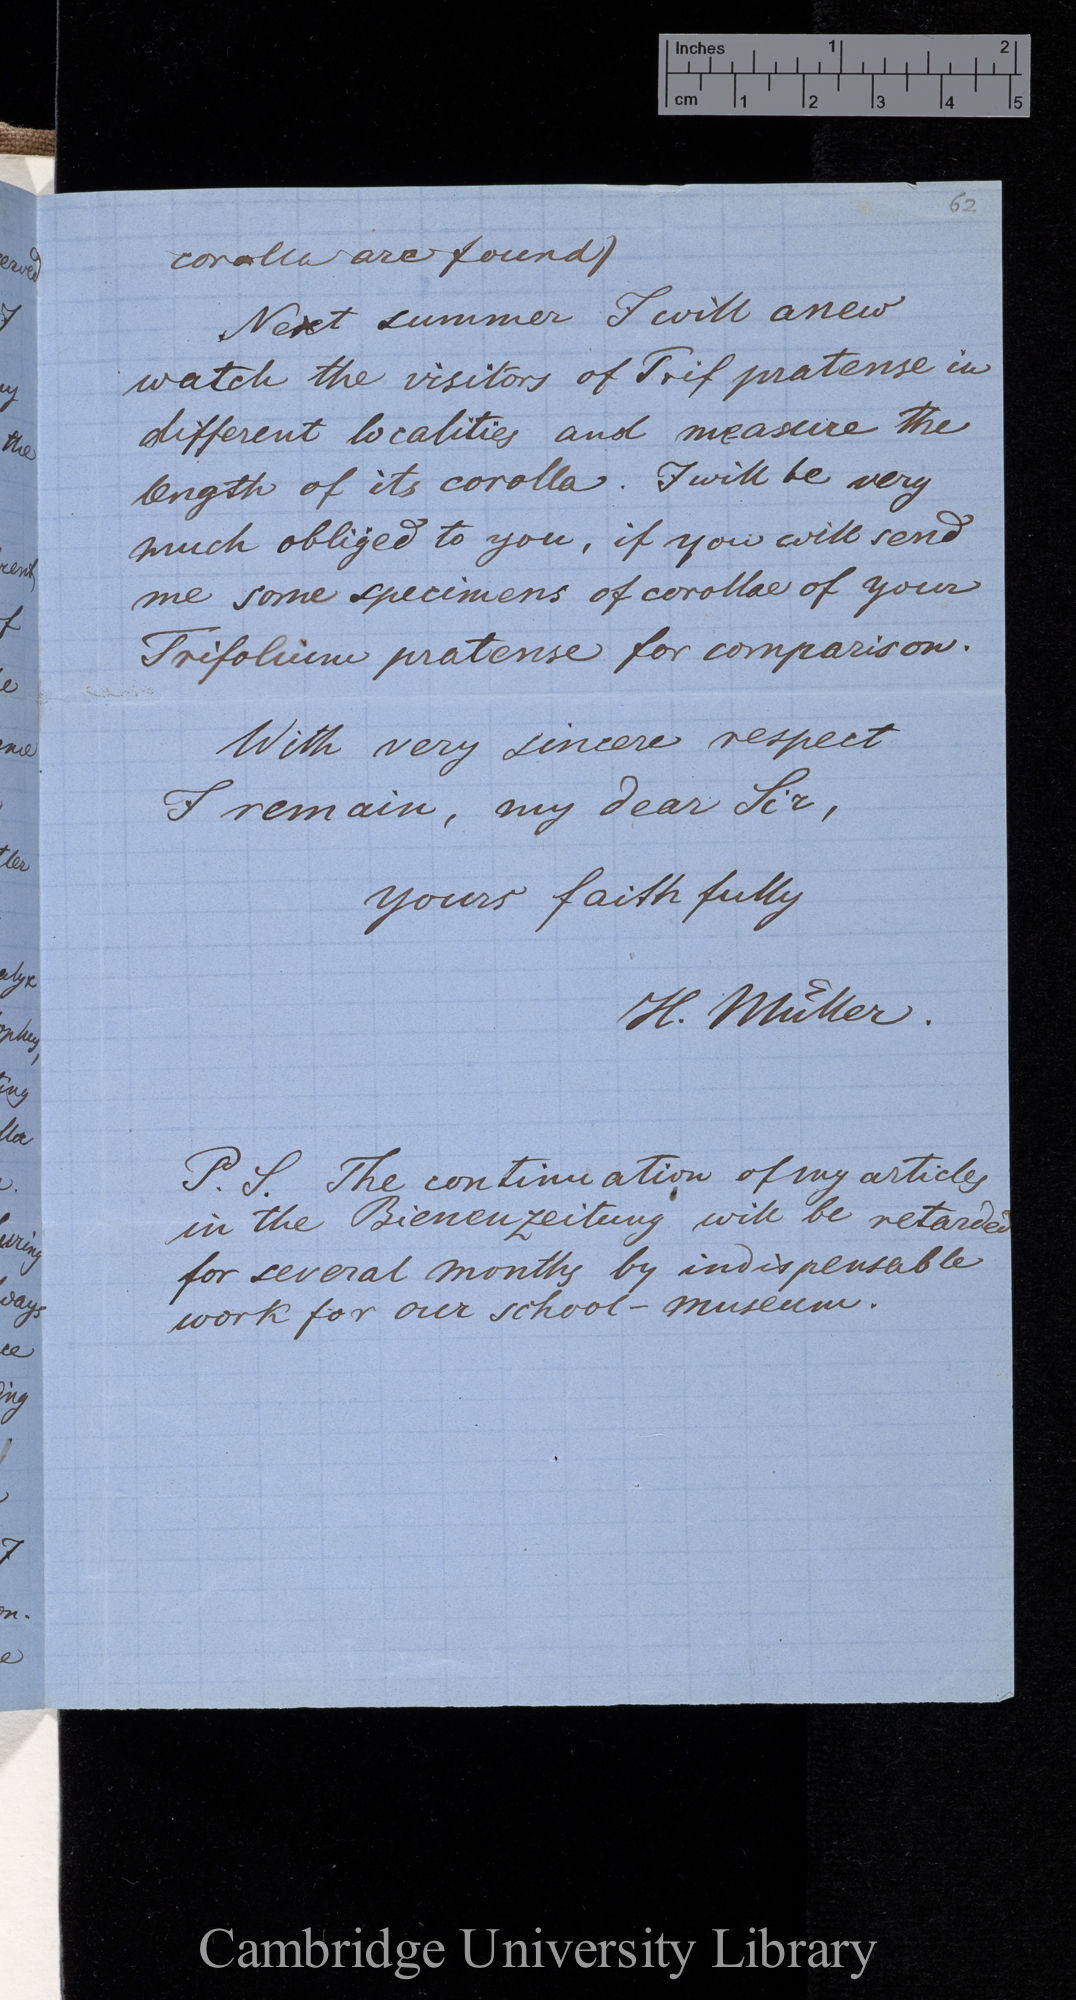 Inches 1 2
cm 1 2 3 4 5
62
corolla are found)
Next summer I will anew
watch the visitors of Trif pratense in
different localities and measure the
length of its corolla. I will be very
much obliged to you, if you will send
me some specimens of corollae of your
Trifolium pratense for comparison.
With very sincere respect
I remain, my dear Sir,
yours faithfully
H. Müller.
P. S. The continuation of my articles
in the Bienenzeitung will be retarded
for several months by indispensable
work for our school-museum.
Cambridge University Library